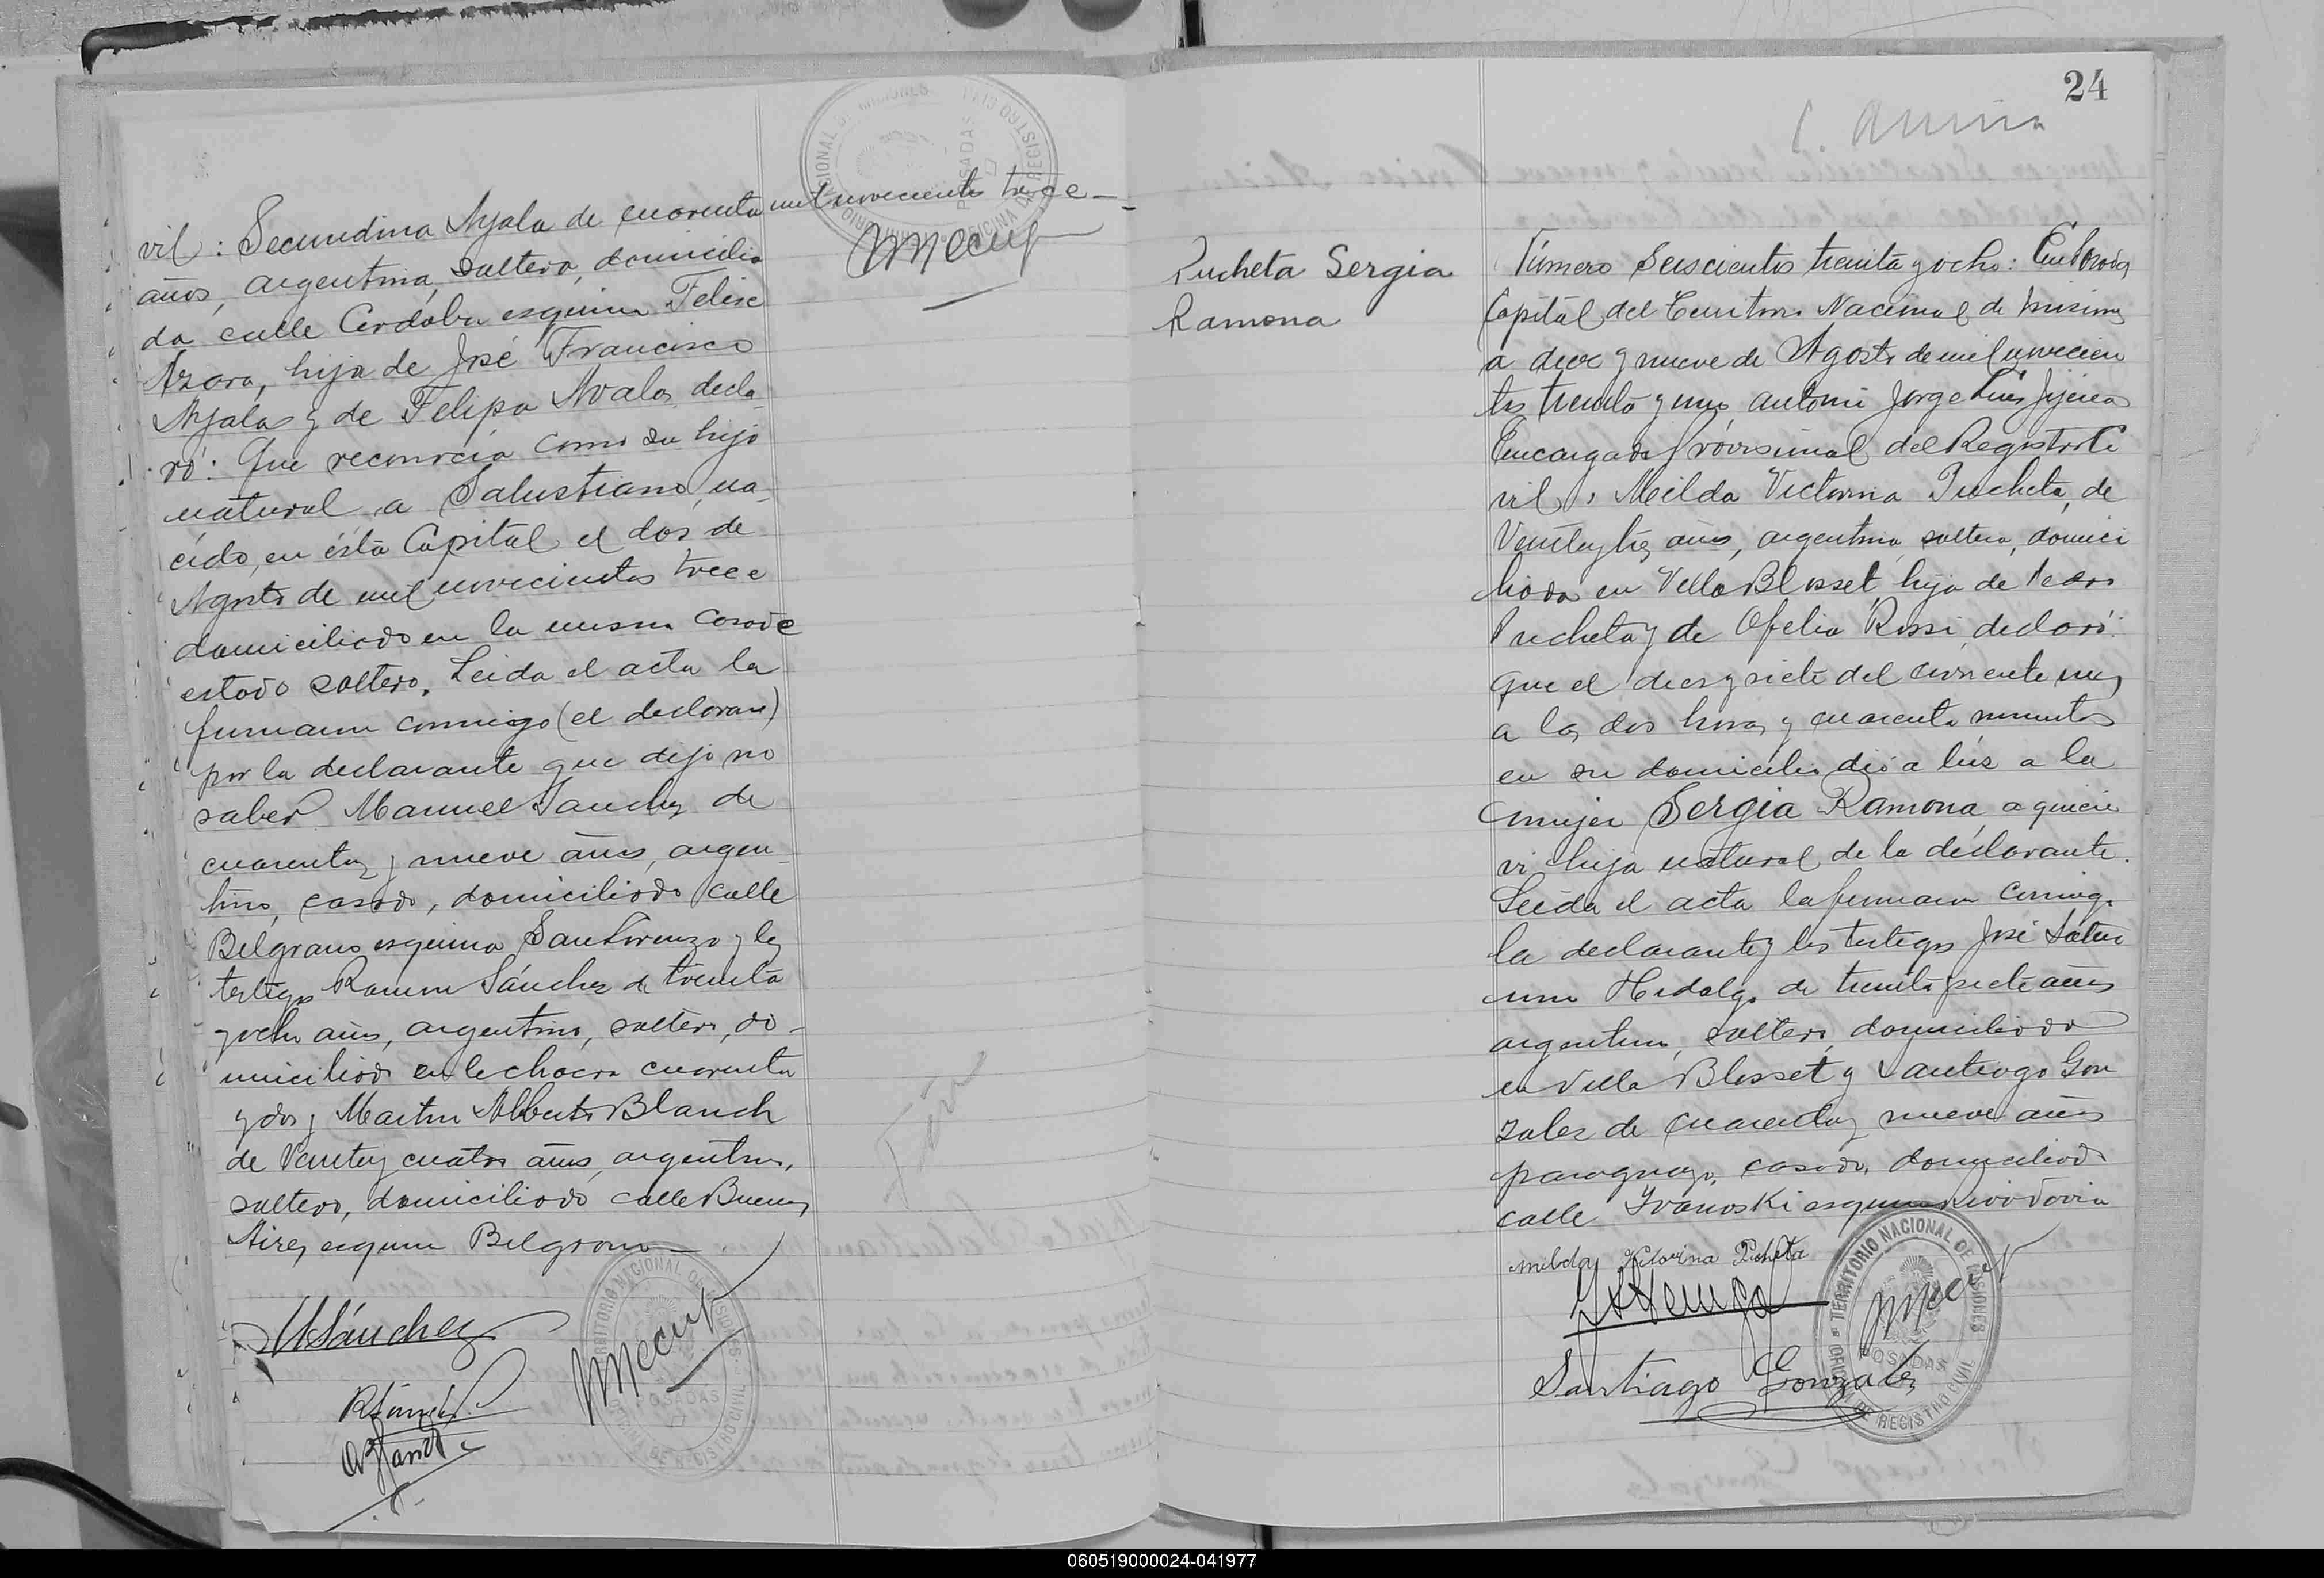 vil: Secundina Ayala de cuarenta mil novecientos trece
años, argentina, soltera, domicilia
da calle Cordoba esquina Felix
Azara, hija de José Francisco
Ayala y de Felipa Avalos, decla
ró: Que reconocia como su hijo
natural a Salustiano, na
cido, en ésta Capital el dos de
Agosto de mil novecientos trece
domiciliado en la misma casa de
estado soltero. Leida el acta la
firmaron conmigo (el declaran)
por la declarante que dijo no
saber Manuel Sanchez de
cuarenta y nueve años, argen
tino, casado, domiciliado calle
Belgrano esquina San Lorenzo y los
testigos Ramon Sánchez de treinta
y ocho años, argentino, soltero, do-
miciliado en la chacra cuarenta
y dos y Martin Alberto Blanch
de Veinte y cuatro años, argentino,
soltero, domiciliado calle Buenos
Aires esquina Belgrano
MSánchez
TERRITORIO NACIONAL DE MISIONES
POSADAS
OFICINA DE REGISTRO CIVIL
24
Pucheta Sergia
Ramona
Número Seiscientos treinta y ocho: En Posadas
Capital del Territorio Nacional de Misiones
a diez y nueve de Agosto de mil novecien
tos treinta y uno ante mi Jorge Luis
Encargado Provisional del Registro Ci
vil, Milda Victorina Pucheta, de
Veinte y tres años, argentina, soltera, domici
liada en Villa Blosset, hija de Pedro
Pucheta y de Ofelia Rossi, declaró:
Que el diez y siete del corriente mes
a las dos horas y cuarenta minutos
en su domicilio dió a lúz a la
mujer Sergia Ramona a quien
vi hija natural de la declarante.
Leida el acta la firmaron conmigo
la declarante y los testigos José Satur
nino Hidalgo de treinta y siete años
argentino, soltero, domiciliado
en Villa Blosset y Santiago Gon
zalez de cuarenta y nueve años
paraguayo, casado, domiciliado
calle Ivanoski esquina Rivadavia
milda Victorina Pucheta
Santiago Gonzalez
TERRITORIO NACIONAL DE MISIONES
POSADAS
OFICINA DE REGISTRO CIVIL
060519000024-041977